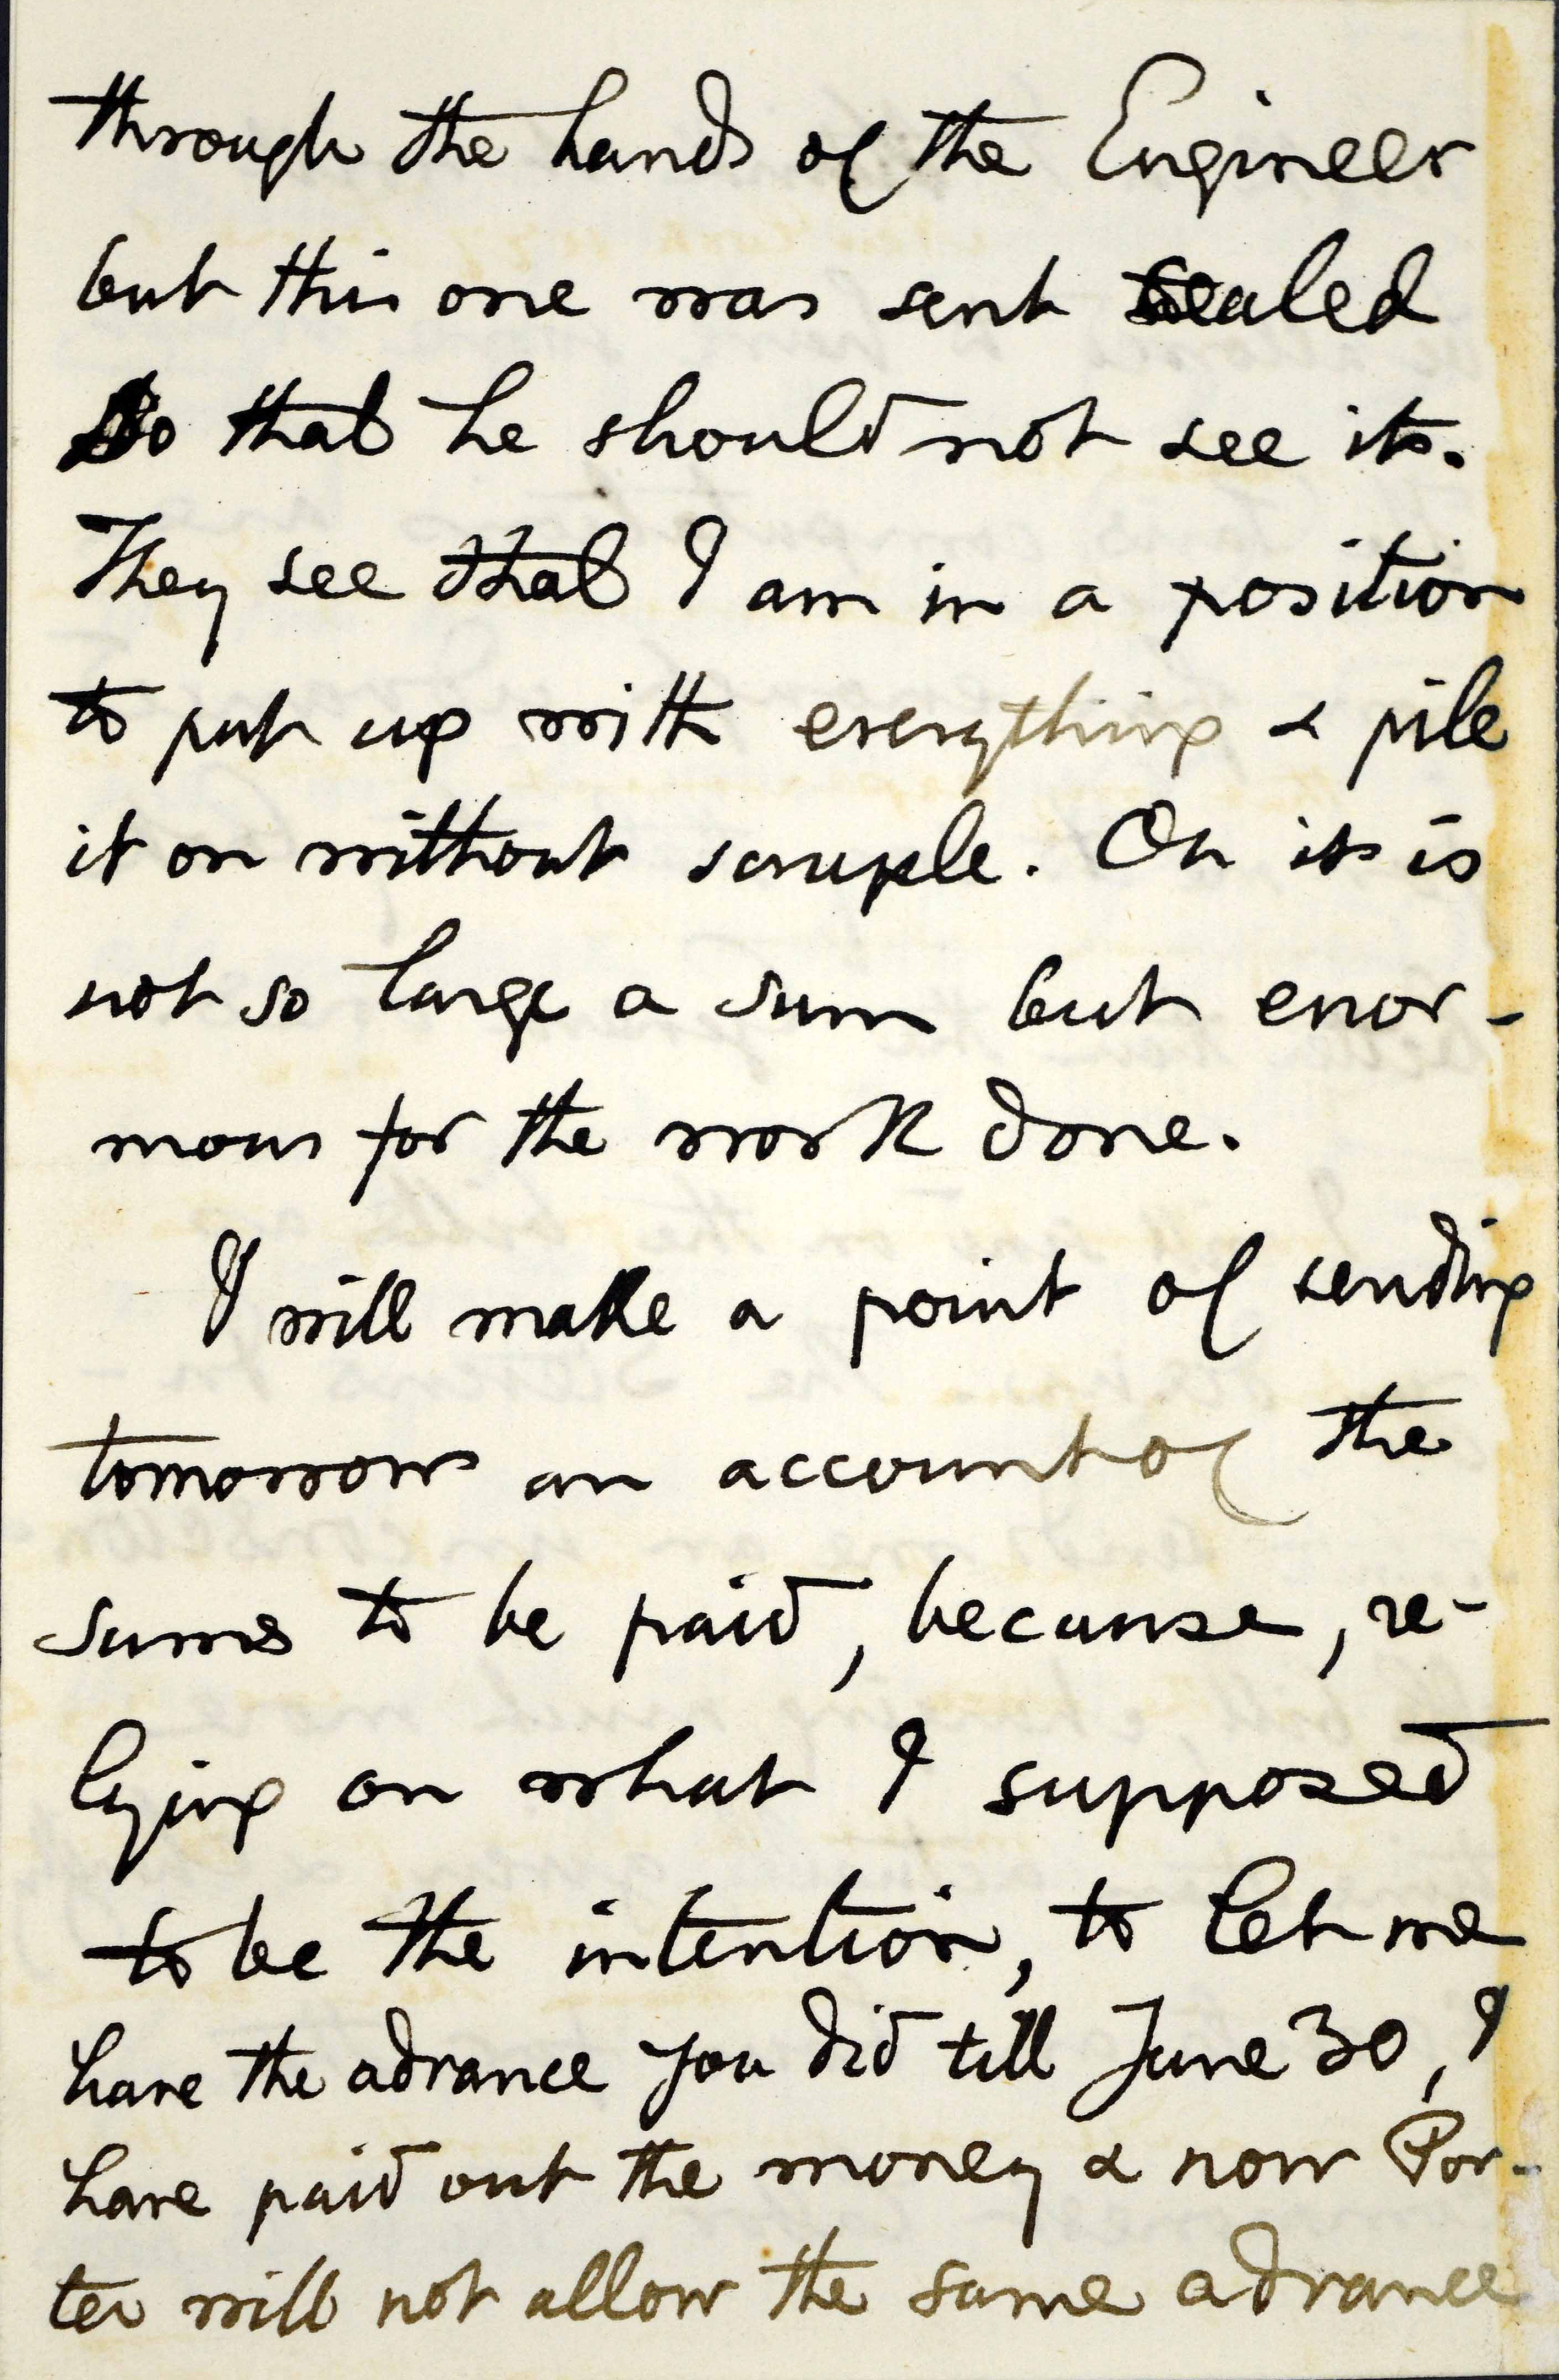 through the hands of the Engineer
but this one was sent sealed
so that he should not see it.
They see that I am in a position
to put up with everything & pile
it on without scruple. Oh it is
not so large a sum but enor-
mous for the work done.
I will make a point of sending
tomorrow an account of the
sums to be paid, because, re-
lying on what I supposed
to be the intention, to let me
have the advance you did till June 30, I
have paid out the money & now Por-
ter will not allow the same advance